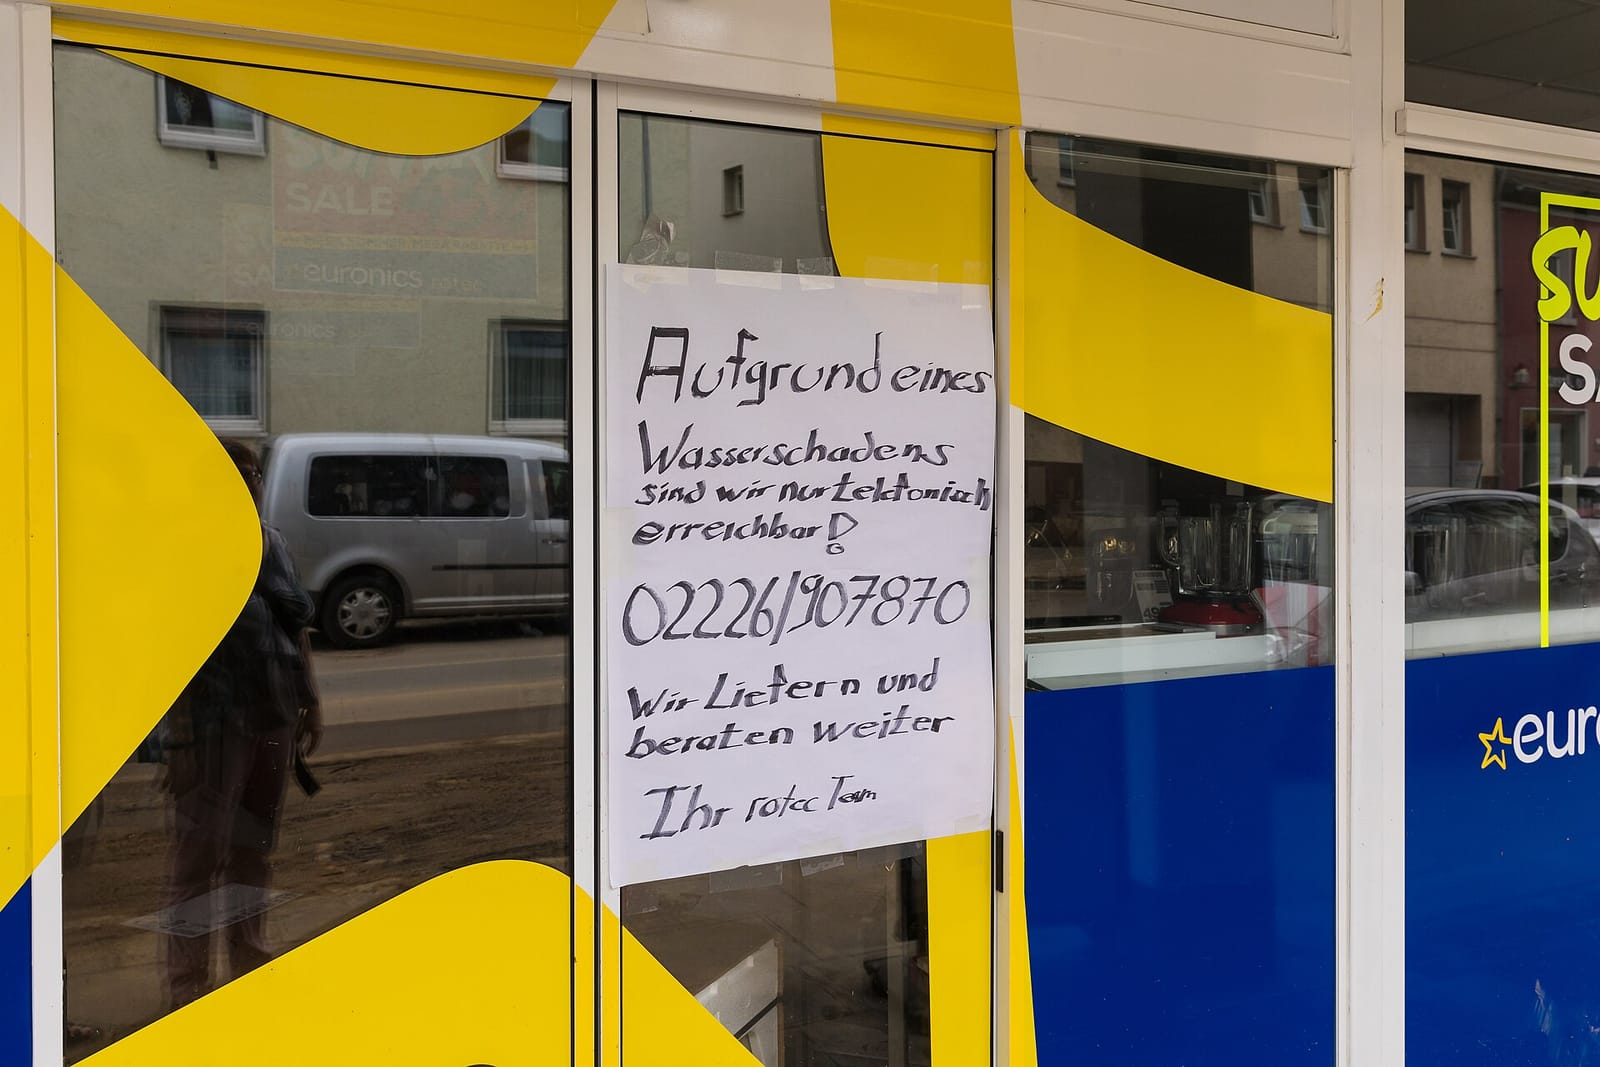 SALE
euronics rotec
euronics
Aufgrund eines
Wasserschadens
sind wir nur telefonisch
erreichbar!
02226/907870
Wir Liefern und
beraten weiter
Ihr rotec Team
SU
SA
euro